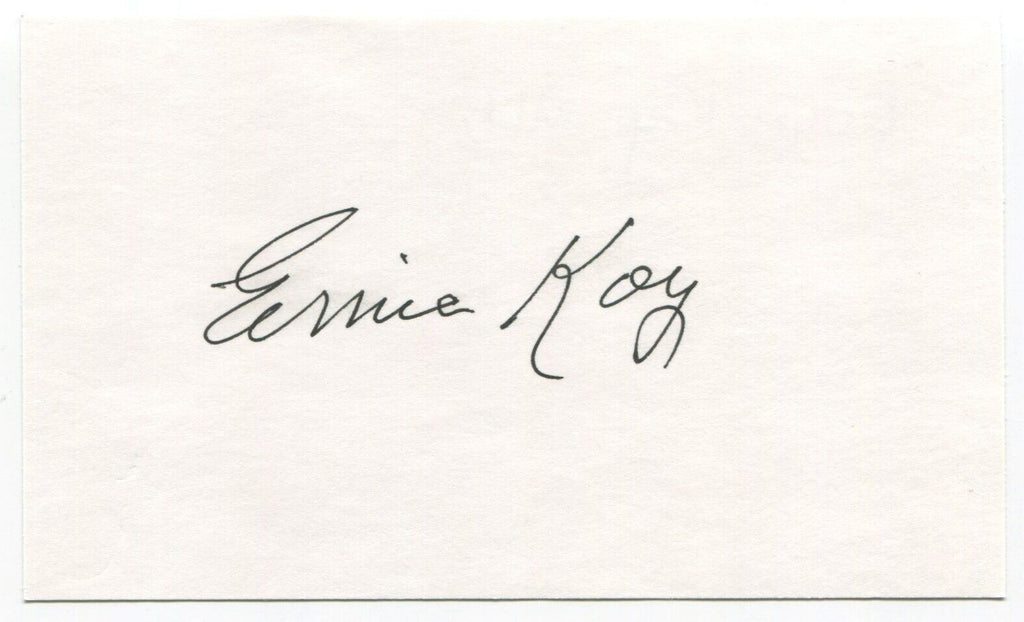 Ernie Koy